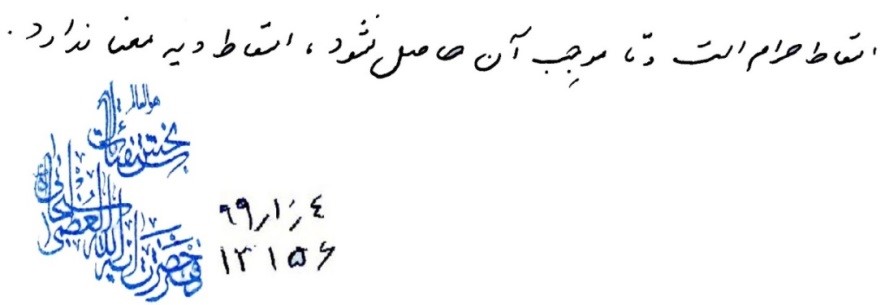 اسقاط حرام است و تا موجب آن حاصل نشود ، اسقاط دیه معنا ندارد .
هوالعالم
بخش استفتائات
دفتر حضرت آیة الله العظمی
۹۹٫۱٫٤
۱۳۱۵۶